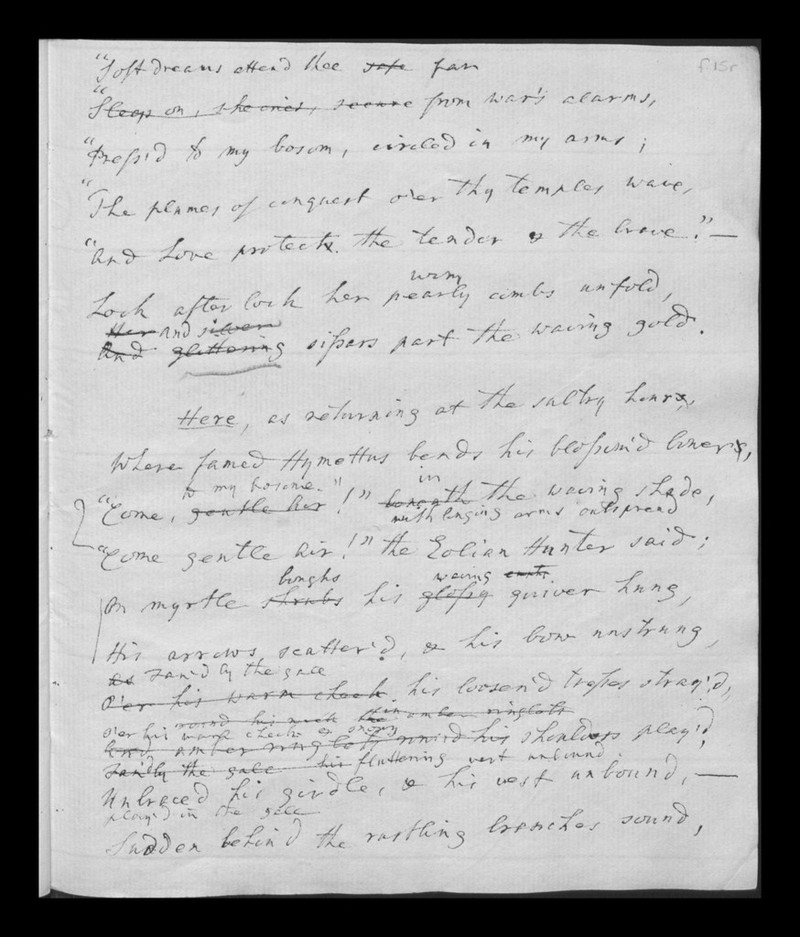 f.15r
"Soft dreams attend thee safe far
"Sleep on, she cries, secure from war's alarms,
"Press'd to my bosom, circled in my arms;
"The plumes of conquest o'er thy temples wave,
"And Love protects the tender & the brave."—
warm
Lock after lock her pearly combs unfold,
Her And silver
And glittering sissars part the waving gold.
Here, as returning at the sultry hours,
Where famed Hymettus bends his blossom'd bowers,
to my bosome." in
"Come, gentle Air!" beneath the waving shade,
with longing arms outspread
"Come gentle Air!" the Eolian Hunter said;
boughs waving
On myrtle shrubs his glossy quiver hung,
His arrows scatter'd, & his bow unstrung,
fan'd by the gale
O'er his warm cheek his loosen'd tresses stray'd,
round his neck the in amber ringlets
o'er his warm cheeks &
And amber ringlets round his shoulders play'd,
Fan'd by the gale his fluttering vest unbound.
Unbraced his girdle, & his vest unbound,—
play'd in the gale
Sudden behind the rustling branches sound,